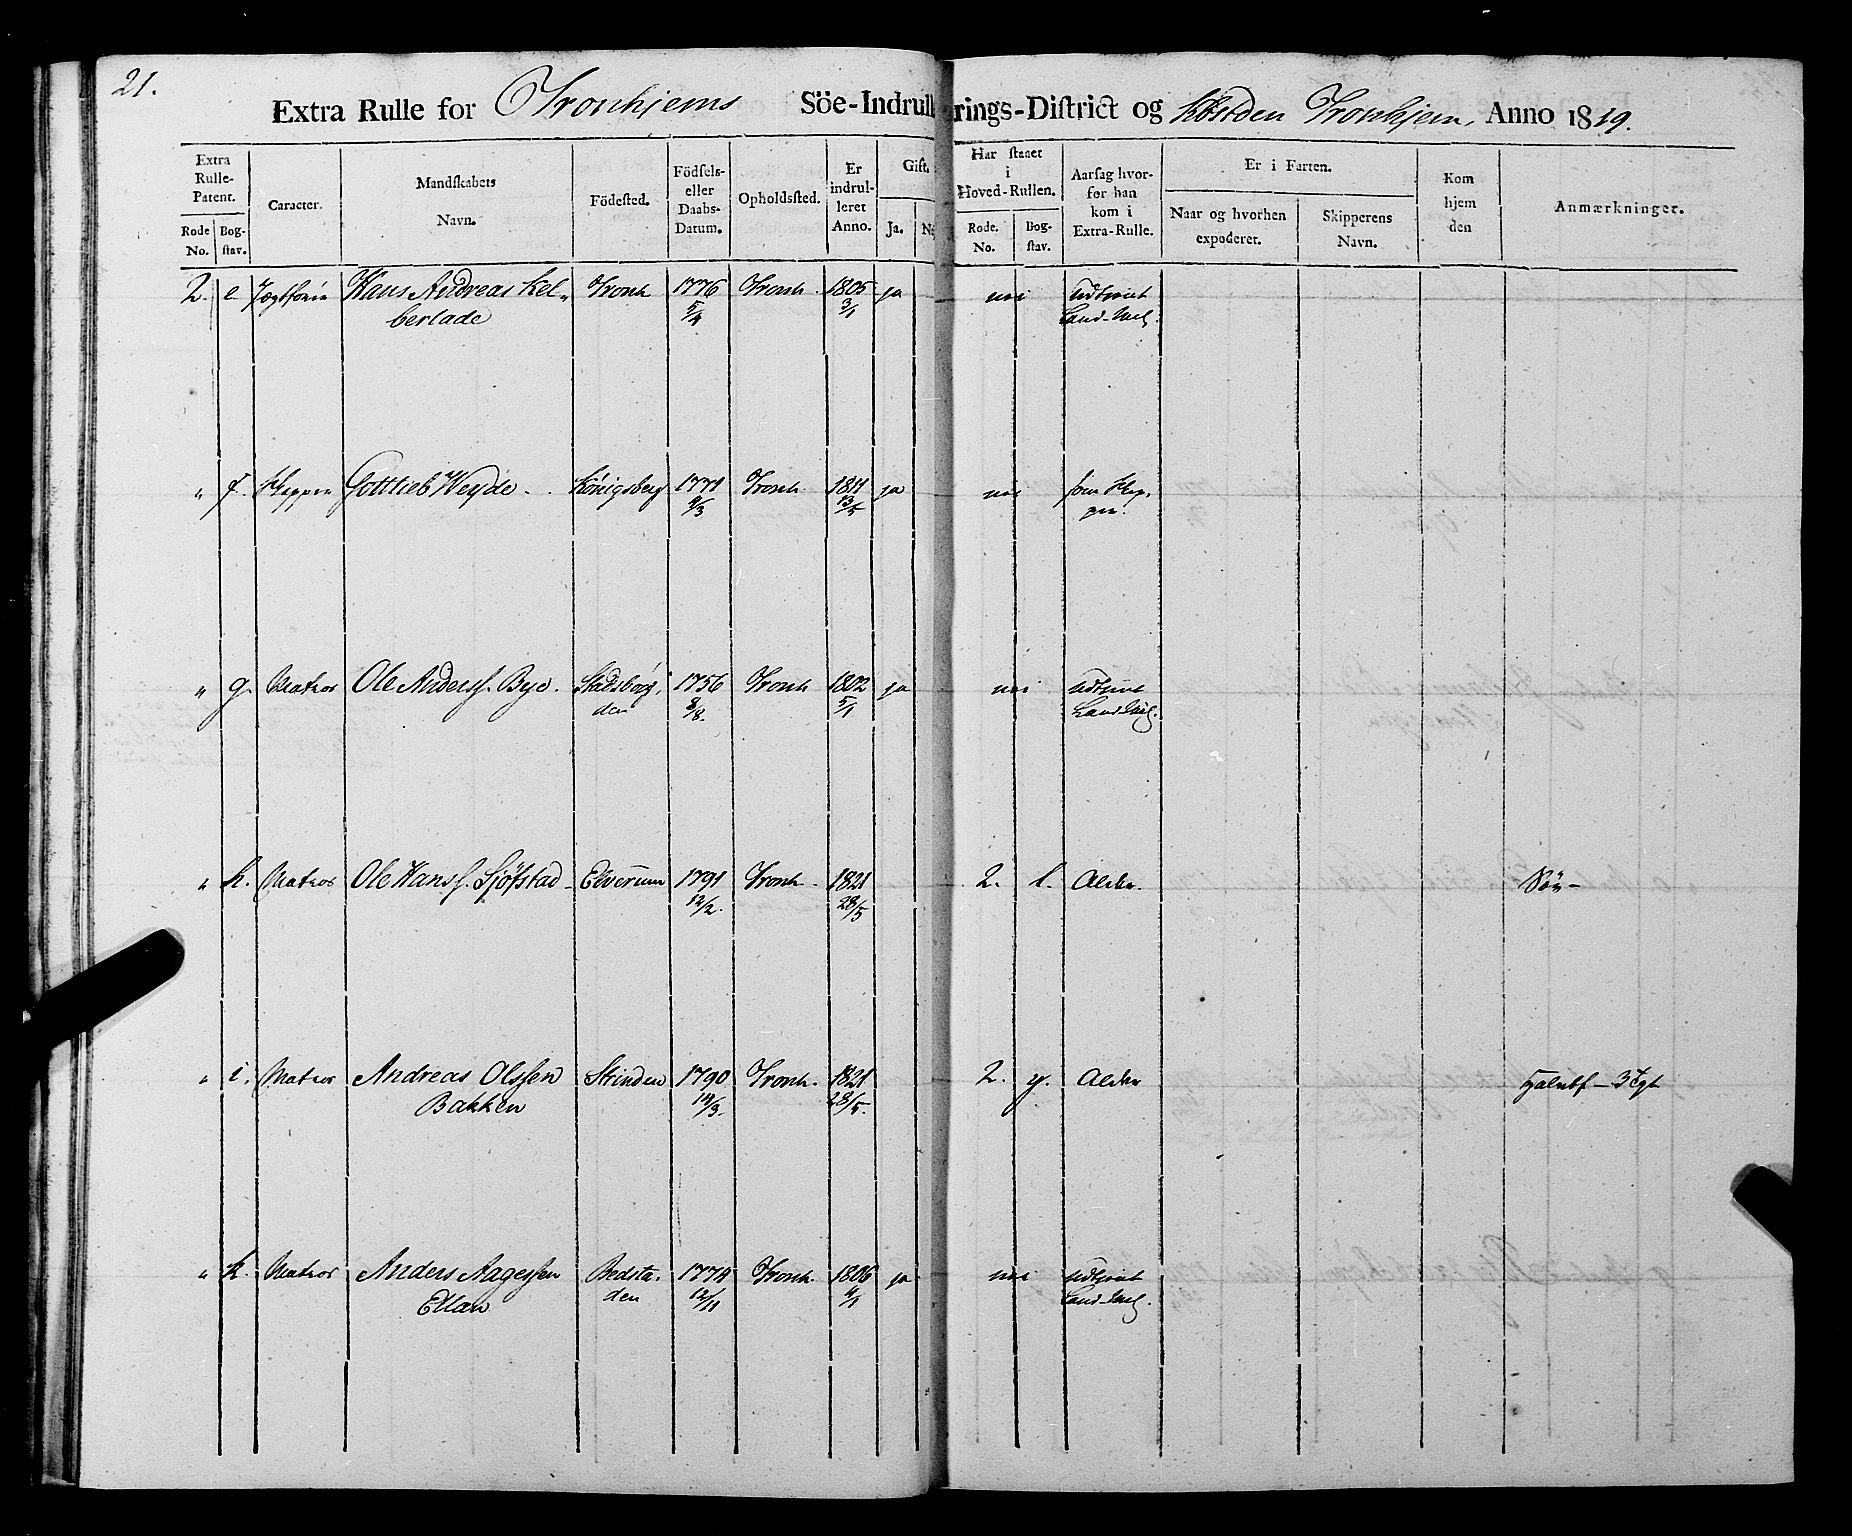 21.
Extra Rulle for Tronhjems Söe-Indrullerings-District og Kiøbstden Tronhjem, Anno 1819.
Extra Rulle-Patent. Caracter. Mandskabets Navn. Födested. Födsels- eller Daabs-Datum. Opholdssted. Er indrulleret Anno. Gift. Har staaet i Hoved-Rullen. Aarsag hvorfor han kom i Extra-Rulle. Er i Farten. Kom hjem den Anmærkninger.
Rode No. Bogstav. Ja. Rode. No. Bogstav. Naar og hvorhen expederet. Skipperens Navn.
2. e Hans Andreas Kel- Tronh 1776 Tronh. 1805 ja nei Udtient
berlade 5/4 3/1 Land-Vuel.
" f. Gottlieb Weyde Königsberg 1771 Tronh. 1811 ja nei som Skip-
9/3 13/5 per.
" g. Matros Ole Anderss. Bye. Stadsbög- 1756 Tronh 1802 ja nei Udtient
den 8/8. 5/1 Land-Vuel.
" h. Matros Ole Hanss. Sjøfstad Elverum 1791 Tronh. 1821 2. l. Alder. Söu-
12/2. 28/5
" i. Matros Andreas Olssen Strinden 1790 Tronh. 1821 2. y. Alder
Bakken 14/3. 28/5.
" k. Matros Anders Aagessen Bedsta- 1774 Tronh. 1806 ja nei Udtient
Ellan den 12/11 4/1 Land-Vuel.